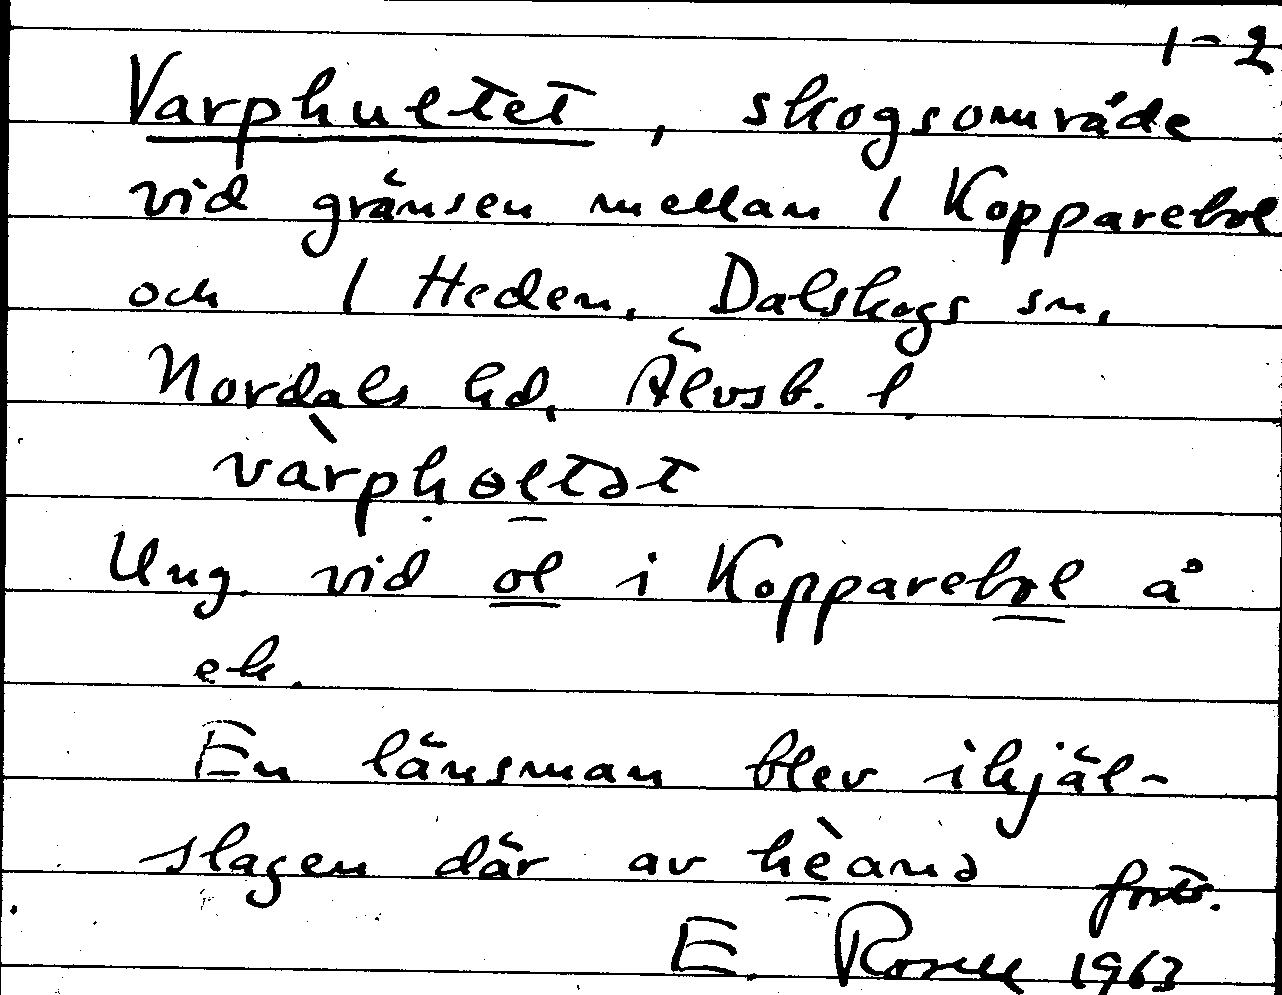 1-2
Varphultet, skogsområde
vid gränsen mellan 1 Kopparebol
och 1 Heden, Dalskogs sn,
Nordals hd, Älvsb. l.
vàrphol̲tət
Ung. vid ol i Kopparebol å
ek.
En länsman blev ihjäl-
slagen där av hèanə forts.
E. Rosell 1963